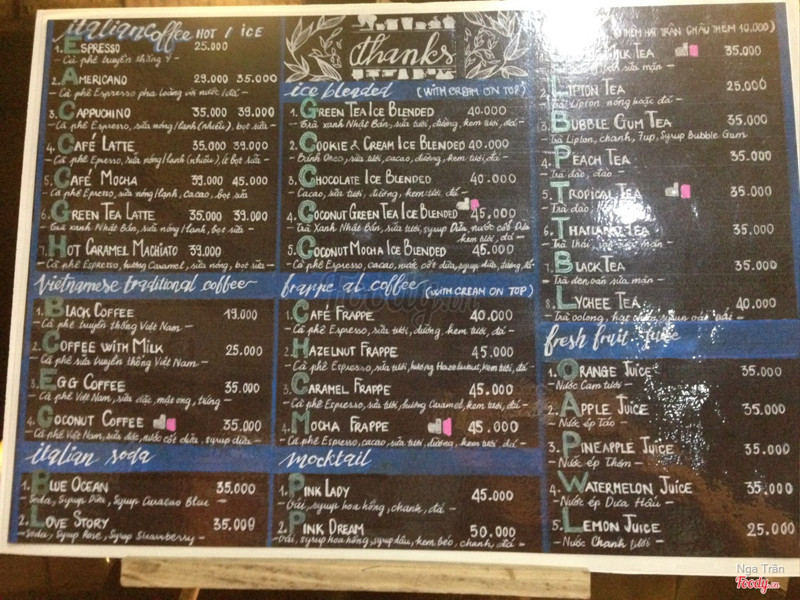 italian coffee HOT / ICE
1. ESPRESSO 25.000
- Cà phê truyền thống Ý -
2. AMERICANO 29.000 35.000
- Cà phê Espresso pha loãng với nước / đá -
3. CAPPUCHINO 35.000 39.000
- Cà phê Espresso, sữa nóng/lạnh (nhiều), bọt sữa -
4. CAFÉ LATTE 35.000 39.000
- Cà phê Epresso, sữa nóng/lạnh (nhiều), ít bọt sữa -
5. CAFÉ MOCHA 39.000 45.000
- Cà phê Epresso, sữa nóng/lạnh, cacao, bọt sữa
6. GREEN TEA LATTE 35.000 39.000
- Trà xanh Nhật Bản, sữa nóng/lạnh, bọt sữa -
7. HOT CARAMEL MACHIATO 39.000
- Cà phê Espresso, hương Caramel, sữa nóng, bọt sữa -
Vietnamese traditional coffee
1. BLACK COFFEE 19.000
- Cà phê truyền thống Việt Nam -
2. COFFEE WITH MILK 25.000
- Cà phê sữa truyền thống Việt Nam -
3. EGG COFFEE 35.000
- Cà phê Việt Nam, sữa đặc, mật ong, trứng -
4. COCONUT COFFEE 35.000
- Cà phê Việt Nam, sữa đặc, nước cốt dừa, syrup dừa -
italian soda
1. BLUE OCEAN 35.000
- Soda, Syrup Dừa, Syrup Curacao Blue -
2. LOVE STORY 35.000
- Soda, Syrup Rose, Syrup Strawberry -
thanks
ice blended (WITH CREAM ON TOP)
1. GREEN TEA ICE BLENDED 40.000
- Trà xanh Nhật Bản, sữa tươi, đường, kem tươi, đá -
2. COOKIE & CREAM ICE BLENDED 40.000
- Bánh Oreo, sữa tươi, cacao, đường, kem tươi, đá -
3. CHOCOLATE ICE BLENDED 40.000
- Cacao, sữa tươi, đường, kem tươi, đá -
4. COCONUT GREEN TEA ICE BLENDED 45.000
- Trà Xanh Nhật Bản, sữa tươi, syrup Dừa, nước cốt Dừa
kem tươi, đá -
5. COCONUT MOCHA ICE BLENDED 45.000
- Cà phê Espresso, cacao, nước cốt dừa, syrup dừa, đường,
frappe al coffee (WITH CREAM ON TOP)
1. CAFÉ FRAPPE 40.000
- Cà phê Espresso, sữa tươi, đường, kem tươi, đá -
2. HAZELNUT FRAPPE 45.000
- Cà phê Espresso, sữa tươi, hương Hazelnut, kem tươi, đá -
3. CARAMEL FRAPPE 45.000
- Cà phê Espresso, sữa tươi, hương Caramel, kem tươi, đá -
4. MOCHA FRAPPE 45.000
- Cà phê Espresso, cacao, sữa tươi, đường, kem tươi, đá -
mocktail
1. PINK LADY 45.000
- Vải, syrup hoa hồng, chanh, đá -
2. PINK DREAM 50.000
- Vải, syrup hoa hồng, syrup dâu, kem béo, chanh, đá -
THÊM HẠT TRÂN CHÂU THÊM 10.000)
MILK TEA 35.000
sữa mặn -
2. LIPTON TEA 25.000
- Trà Lipton nóng hoặc đá -
3. BUBBLE GUM TEA 35.000
- Trà Lipton, chanh, 7up, Syrup Bubble Gum
4. PEACH TEA 35.000
- Trà đào, đào -
5. TROPICAL TEA 35.000
- Trà đào
6. THAILAND TEA 35.000
- Trà Thái,
7. BLACK TEA 35.000
- Trà đen váng sữa mặn -
8. LYCHEE TEA 40.000
- Trà oolong, hạt
fresh fruit juice
1. ORANGE JUICE 35.000
- Nước Cam tươi -
2. APPLE JUICE 35.000
- Nước ép Táo -
3. PINEAPPLE JUICE 35.000
- Nước ép Thơm -
4. WATERMELON JUICE 35.000
- Nước ép Dưa Hấu -
5. LEMON JUICE 25.000
- Nước Chanh tươi -
Foody.vn
Nga Trân
Foody.vn